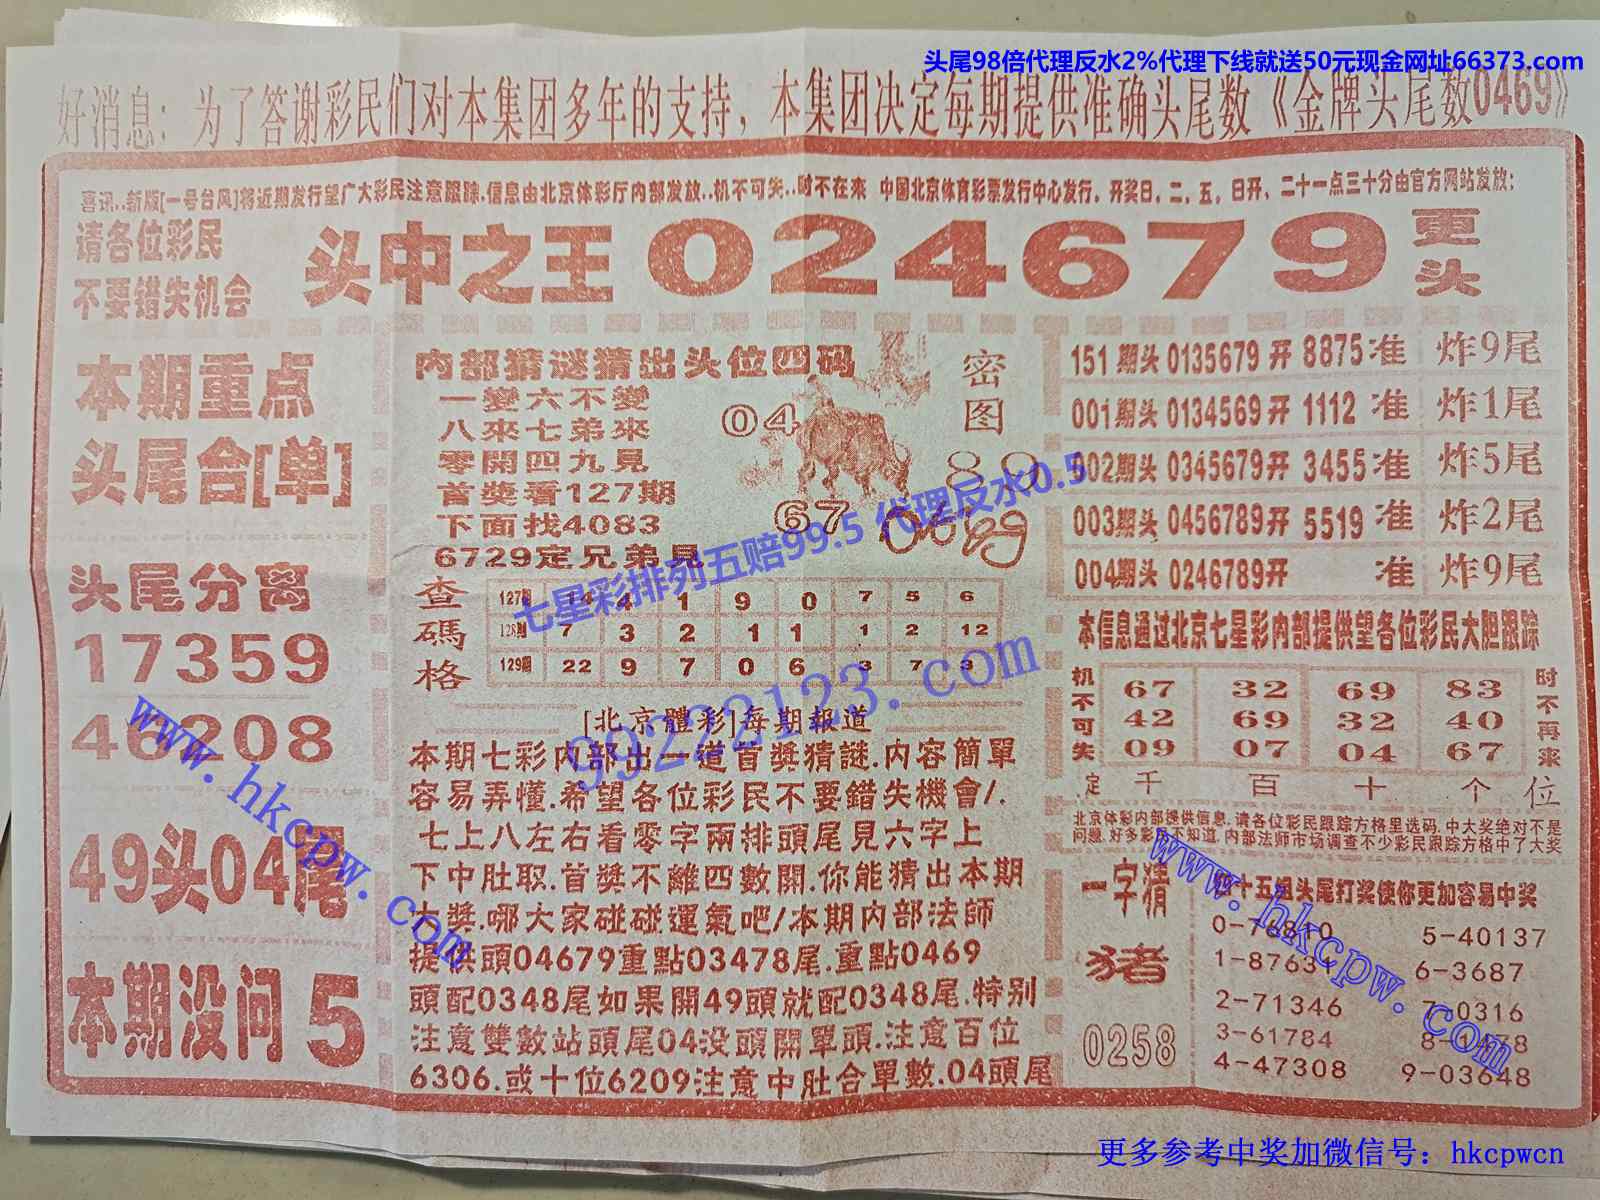 头尾98倍代理反水2%代理下线就送50元现金网址66373.com
好消息：为了答谢彩民们对本集团多年的支持，本集团决定每期提供准确头尾数《金牌头尾数0469》
喜讯..新版[一号台风]将近期发行望广大彩民注意跟踪.信息由北京体彩厅内部发放..机不可失..时不在来 中国北京体育彩票发行中心发行，开奖日，二，五，日开、二十一点三十分由官方网站发放；
请各位彩民
不要错失机会
头中之王024679
更头
本期重点
头尾合[单]
头尾分离
17359
46208
49头04尾
本期没问5
内部猜谜猜出头位四码
一變六不變
八來七弟來
零開四九見
首奬看127期
下面找4083
6729定兄弟見
密图
04
89
67
查碼格
127期 14 4 1 9 0 7 5 6
128期 7 3 2 1 1 1 2 12
129期 22 9 7 0 6 3 7 3
[北京體彩]每期報道
本期七彩内部出一道首奬猜謎.内容簡單
容易弄懂.希望各位彩民不要錯失機會/.
七上八左右看零字兩排頭尾見六字上
下中肚取.首奬不離四數開.你能猜出本期
大奬.哪大家碰碰運氣吧/本期内部法師
提供頭04679重點03478尾.重點0469
頭配0348尾如果開49頭就配0348尾.特别
注意雙數站頭尾04没頭開單頭.注意百位
6306.或十位6209注意中肚合單數.04頭尾
151期头0135679开8875准 炸9尾
001期头0134569开1112准 炸1尾
002期头0345679开3455准 炸5尾
003期头0456789开5519准 炸2尾
004期头0246789开 准 炸9尾
本信息通过北京七星彩内部提供望各位彩民大胆跟踪
机不可失
67 32 69 83
42 69 32 40
09 07 04 67
时不再来
定 千 百 十 个 位
北京体彩内部提供信息.请各位彩民跟踪方格里选码.中大奖绝对不是
问题.好多彩民不知道.内部法师市场调查不少彩民跟踪方格中了大奖
一字猜
猪
0258
四十五组头尾打奖使你更加容易中奖
0-76810 5-40137
1-87631 6-3687
2-71346 7-0316
3-61784
4-47308 9-03648
七星彩排列五赔99.5 代理反水0.5
99222123.com
www.hkcpw.com
www.hkcpw.com
更多参考中奖加微信号：hkcpwcn